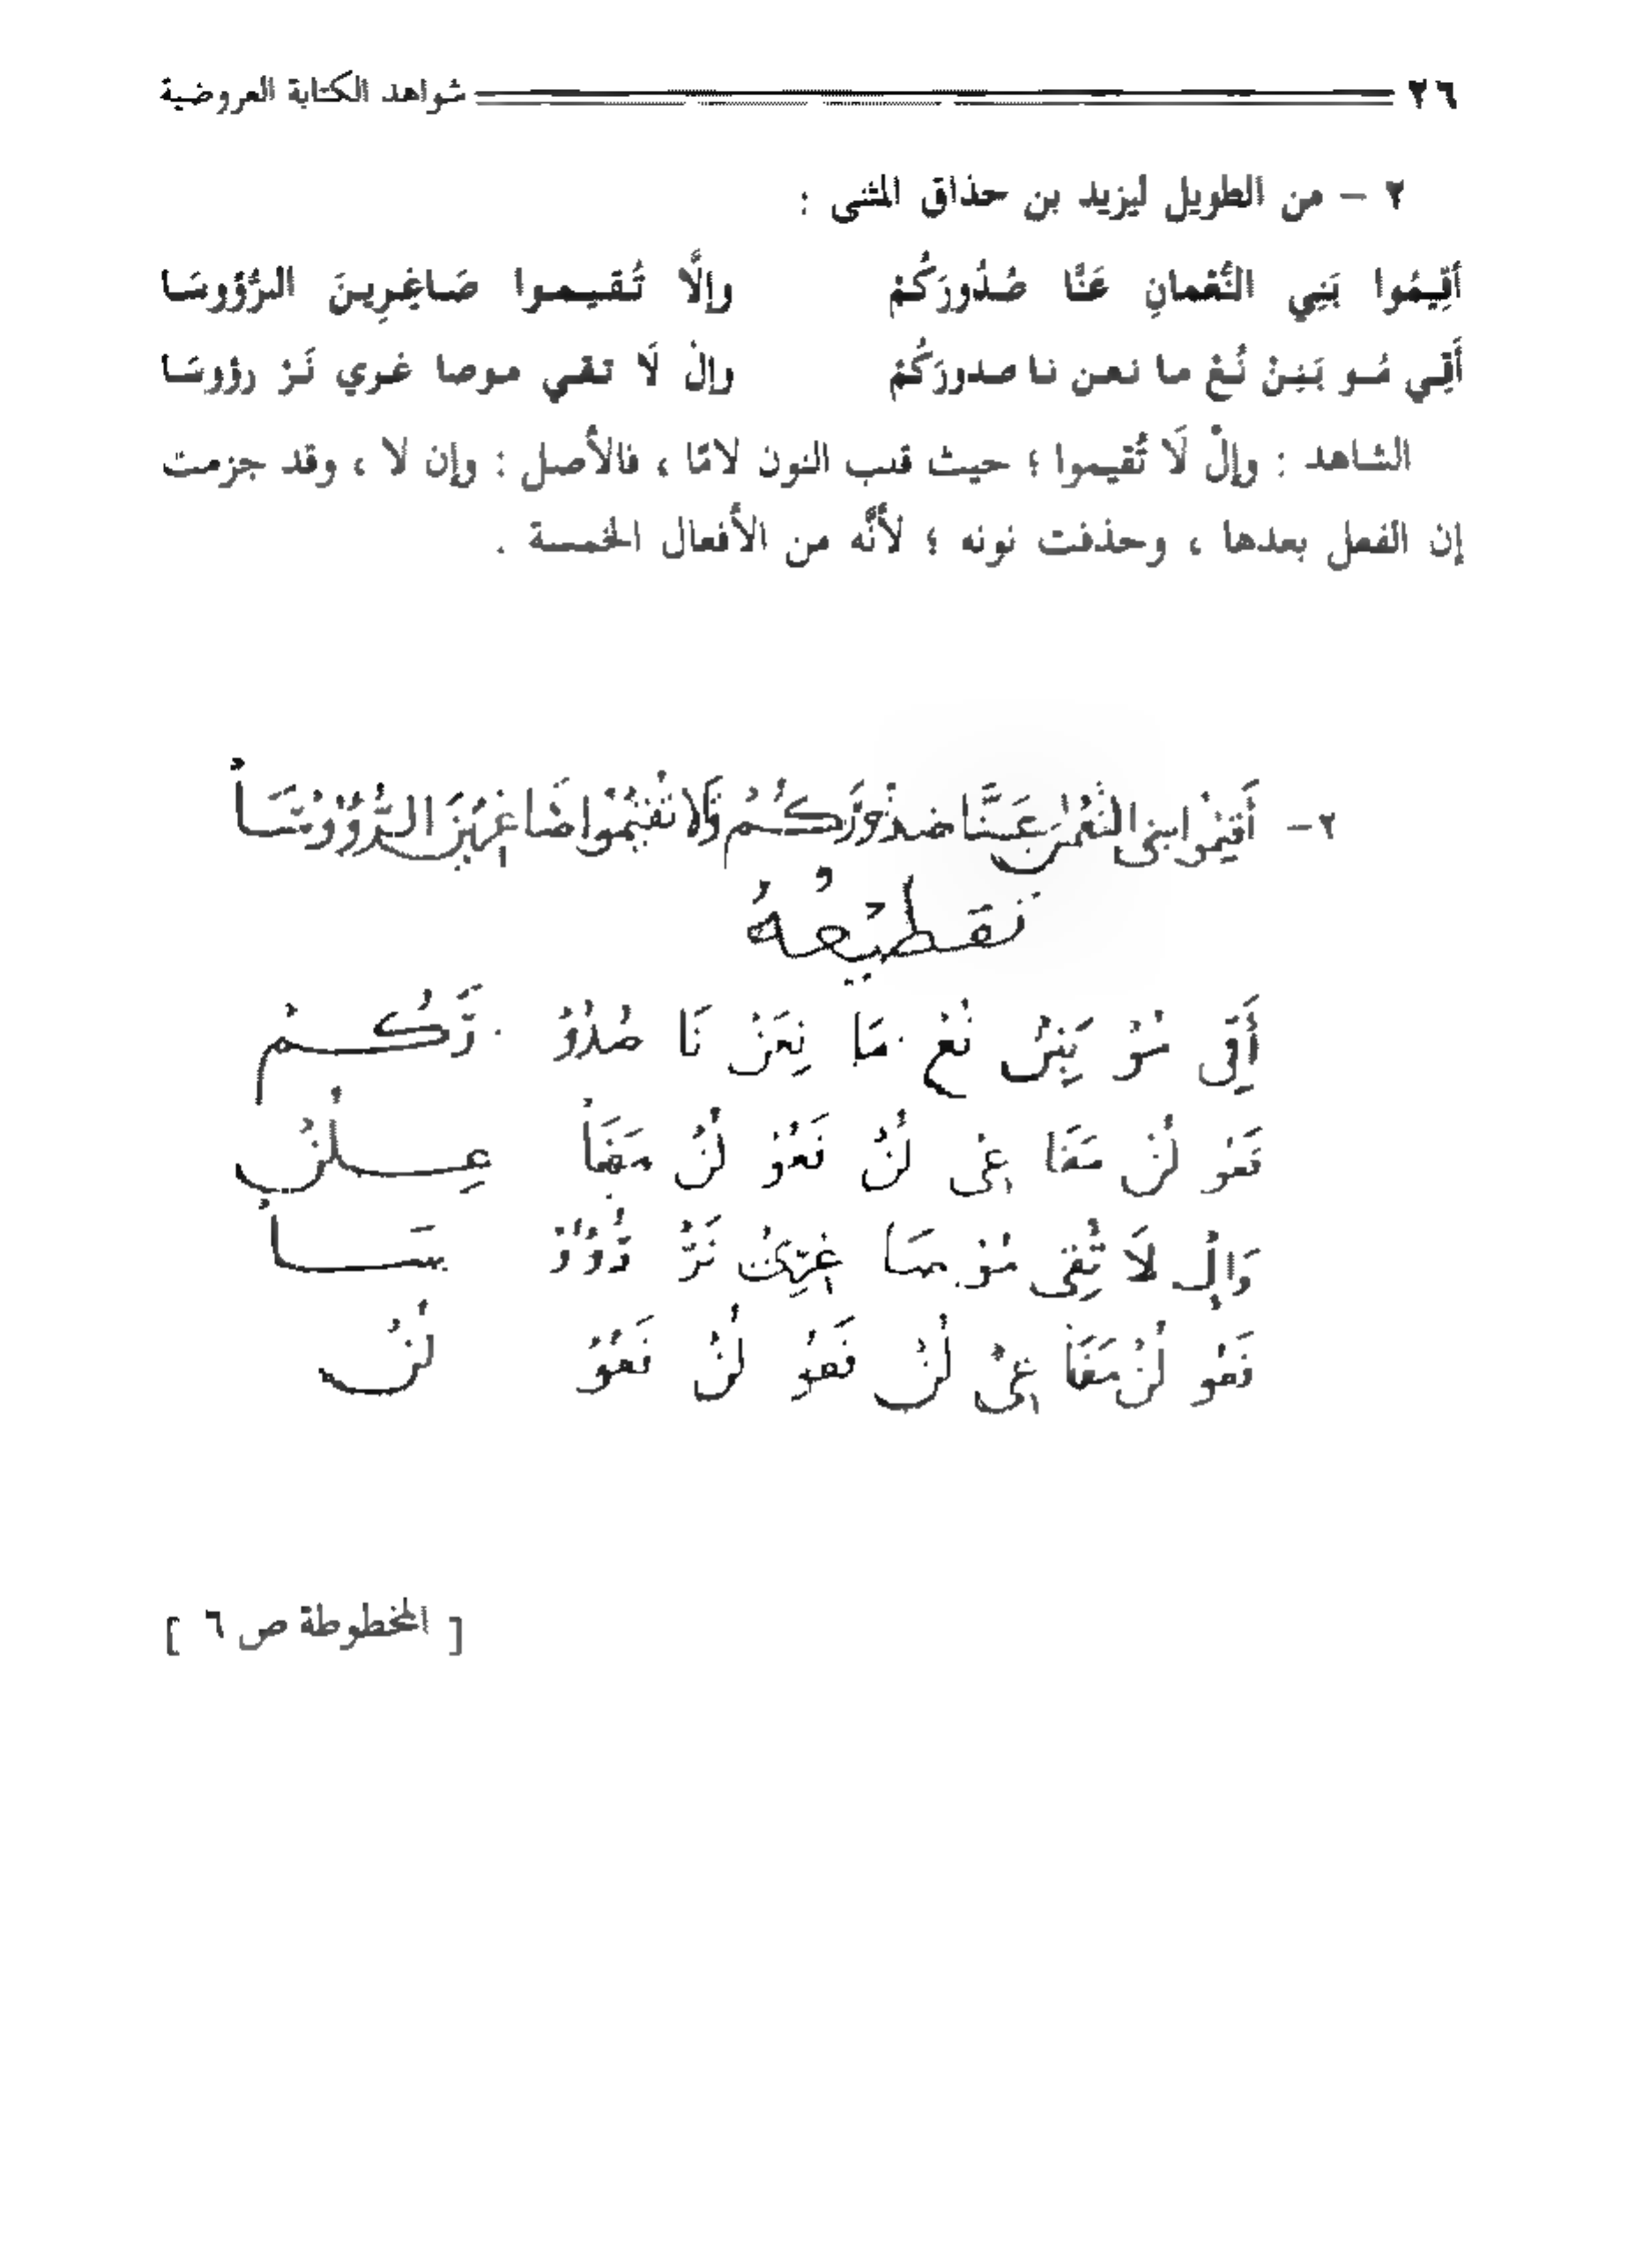 ٢٦ شواهد الكتابة العروضية
٢ – من الطويل ليزيد بن حذاق المثنى :
أَقِيمُوا بَنِي النُّعْمانِ عَنَّا صُدُورَكُمْ وإلَّا تُقيمـوا صَاغِرِينَ الرُّؤوسَا
أَقِي مُو بَنِنْ نُعْ ما نعن نا صدورَكُمْ وإلْ لَا تقي موصا غري نَرْ رؤوسَا
الشاهد : وإلْ لَا تُقيموا ؛ حيث قلب النون لامًا ، فالأصل : وإن لا ، وقد جزمت
إن الفعل بعدها ، وحذفت نونه ؛ لأنَّه من الأفعال الخمسة .
٢– أَقِيْمُوا بني النُّعْمٰنِ عَنَّا صُدُوْرَكُمْ وَإلا تُقِيْمُوا صَاغِرِيْنَ الرُّؤُوْسَا
تَقْطِيْعُهُ
أَقِيْ مُوْ بَنِنْ نُعْ مَا نِعَنْ نَا صُدُوْ رَكُمْ
فَعُوْ لُنْ مَفَا عِيْ لُنْ فَعُوْ لُنْ مَفَا عِلُنْ
وَإِلْ لَا تُقِيْ مُوْ صَا غِرِيْ نَرْ رُؤُوْ سَا
فَعُوْ لُنْ مَفَا عِيْ لُنْ فَعُوْ لُنْ فَعُوْ لُنْ
[ المخطوطة ص ٦ ]